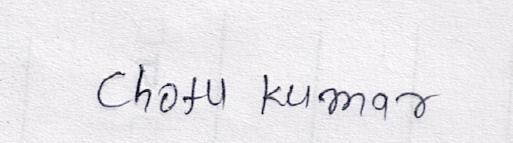 Chotu kumar